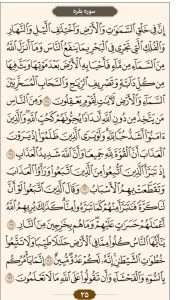 سوره بقره
إِنَّ فِى خَلْقِ ٱلسَّمَٰوَٰتِ وَٱلْأَرْضِ وَٱخْتِلَٰفِ ٱلَّيْلِ وَٱلنَّهَارِ
وَٱلْفُلْكِ ٱلَّتِى تَجْرِى فِى ٱلْبَحْرِ بِمَا يَنفَعُ ٱلنَّاسَ وَمَآ أَنزَلَ ٱللَّهُ
مِنَ ٱلسَّمَآءِ مِن مَّآءٍ فَأَحْيَا بِهِ ٱلْأَرْضَ بَعْدَ مَوْتِهَا وَبَثَّ فِيهَا
مِن كُلِّ دَآبَّةٍ وَتَصْرِيفِ ٱلرِّيَٰحِ وَٱلسَّحَابِ ٱلْمُسَخَّرِ بَيْنَ
ٱلسَّمَآءِ وَٱلْأَرْضِ لَءَايَٰتٍ لِّقَوْمٍ يَعْقِلُونَ ۱۶۴ وَمِنَ ٱلنَّاسِ
مَن يَتَّخِذُ مِن دُونِ ٱللَّهِ أَندَادًا يُحِبُّونَهُمْ كَحُبِّ ٱللَّهِ وَٱلَّذِينَ
ءَامَنُوٓا۟ أَشَدُّ حُبًّا لِّلَّهِ وَلَوْ يَرَى ٱلَّذِينَ ظَلَمُوٓا۟ إِذْ يَرَوْنَ
ٱلْعَذَابَ أَنَّ ٱلْقُوَّةَ لِلَّهِ جَمِيعًا وَأَنَّ ٱللَّهَ شَدِيدُ ٱلْعَذَابِ ۱۶۵
إِذْ تَبَرَّأَ ٱلَّذِينَ ٱتُّبِعُوا۟ مِنَ ٱلَّذِينَ ٱتَّبَعُوا۟ وَرَأَوُا۟ ٱلْعَذَابَ
وَتَقَطَّعَتْ بِهِمُ ٱلْأَسْبَابُ ۱۶۶ وَقَالَ ٱلَّذِينَ ٱتَّبَعُوا۟ لَوْ أَنَّ
لَنَا كَرَّةً فَنَتَبَرَّأَ مِنْهُمْ كَمَا تَبَرَّءُوا۟ مِنَّا كَذَٰلِكَ يُرِيهِمُ ٱللَّهُ
أَعْمَٰلَهُمْ حَسَرَٰتٍ عَلَيْهِمْ وَمَا هُم بِخَٰرِجِينَ مِنَ ٱلنَّارِ ۱۶۷
يَٰٓأَيُّهَا ٱلنَّاسُ كُلُوا۟ مِمَّا فِى ٱلْأَرْضِ حَلَٰلًا طَيِّبًا وَلَا تَتَّبِعُوا۟
خُطُوَٰتِ ٱلشَّيْطَٰنِ إِنَّهُۥ لَكُمْ عَدُوٌّ مُّبِينٌ ۱۶۸ إِنَّمَا يَأْمُرُكُم
بِٱلسُّوٓءِ وَٱلْفَحْشَآءِ وَأَن تَقُولُوا۟ عَلَى ٱللَّهِ مَا لَا تَعْلَمُونَ ۱۶۹
۲۵